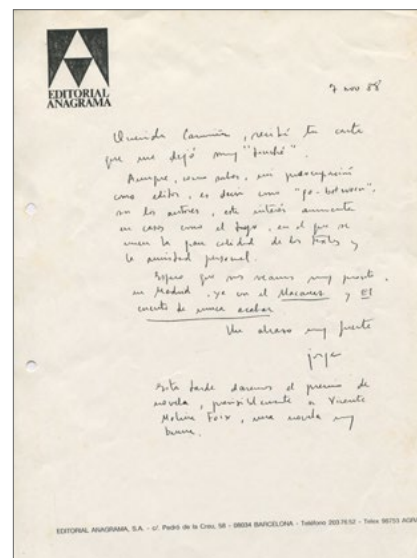 EDITORIAL
ANAGRAMA
7 nov 88
Querida Carmiña, recibí tu carta
que me dejó muy "touché".
Aunque, como sabes, mi preocupación
como editor, es decir como "go-between",
son los autores, este interés aumenta
en casos como el tuyo, en el que se
unen la gran calidad de los textos y
la amistad personal.
Espero que nos veamos muy pronto,
en Madrid, ya con el Macanaz y El
cuento de nunca acabar
Un abrazo muy fuerte
Jorge
Esta tarde daremos el premio de
novela, posiblemente a Vicente
Molina Foix, una novela muy
buena.
EDITORIAL ANAGRAMA, S.A. - c/. Pedró de la Creu, 58 - 08034 BARCELONA - Teléfono 203 76 52 - Télex 98753